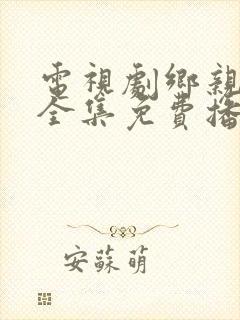 電視劇鄉親
全集免費播
安蘇萌